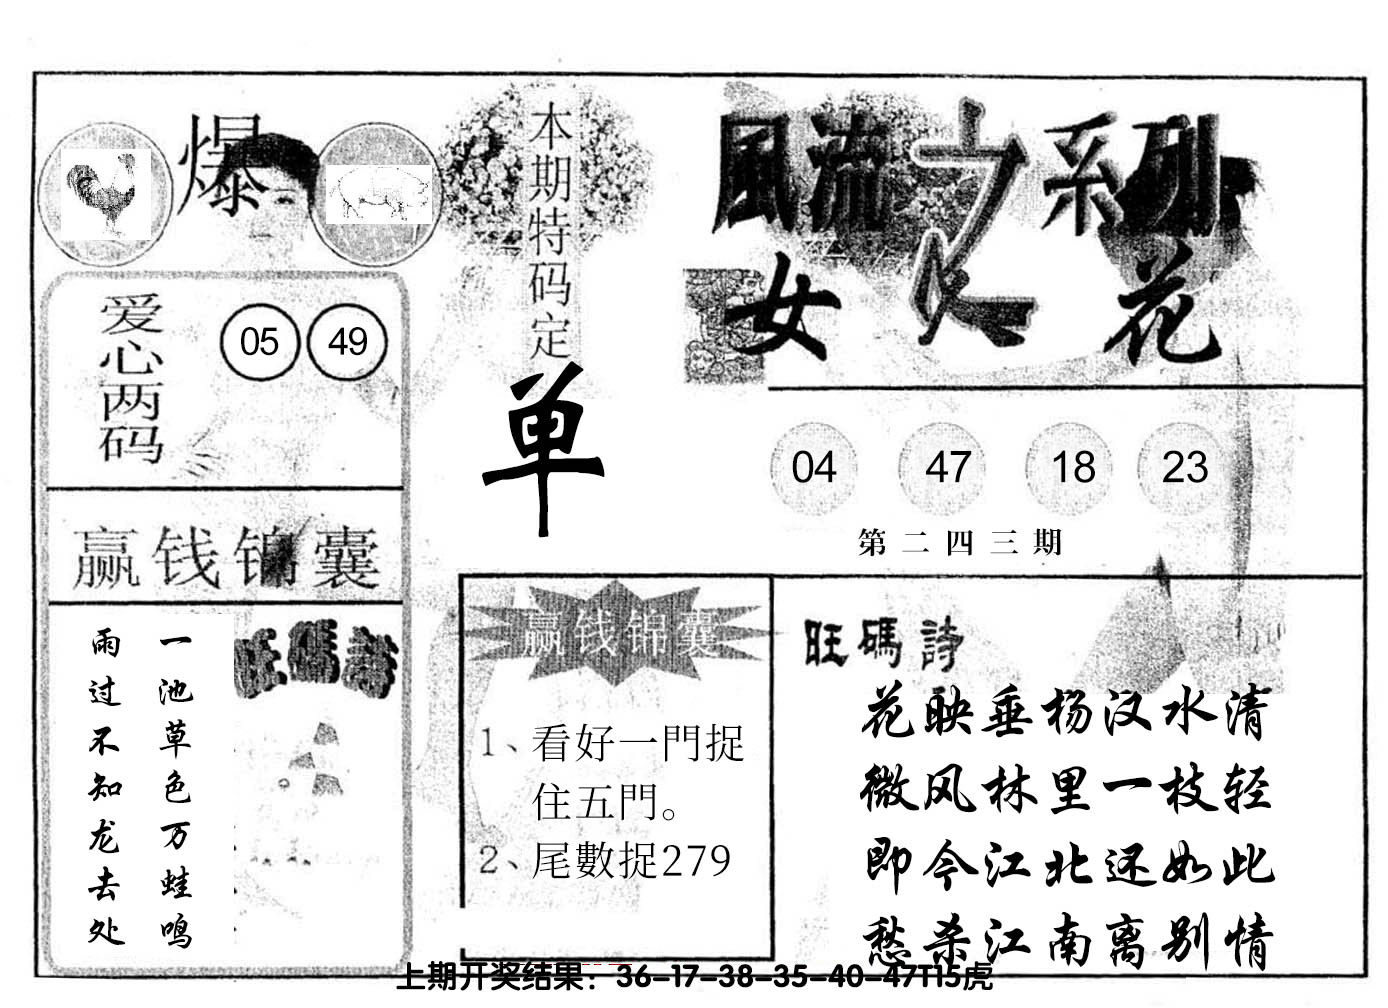 爆
本期特码定
单
風流之系列
女人花
爱心两码
05 49
04 47 18 23
第二四三期
赢钱锦囊
旺碼詩
雨过不知龙去处
一池草色万蛙鸣
赢钱锦囊
1、看好一門捉
住五門。
2、尾數捉279
旺碼詩
花映垂杨汉水清
微风林里一枝轻
即今江北还如此
愁杀江南离别情
上期开奖结果：36-17-38-35-40-47T15虎